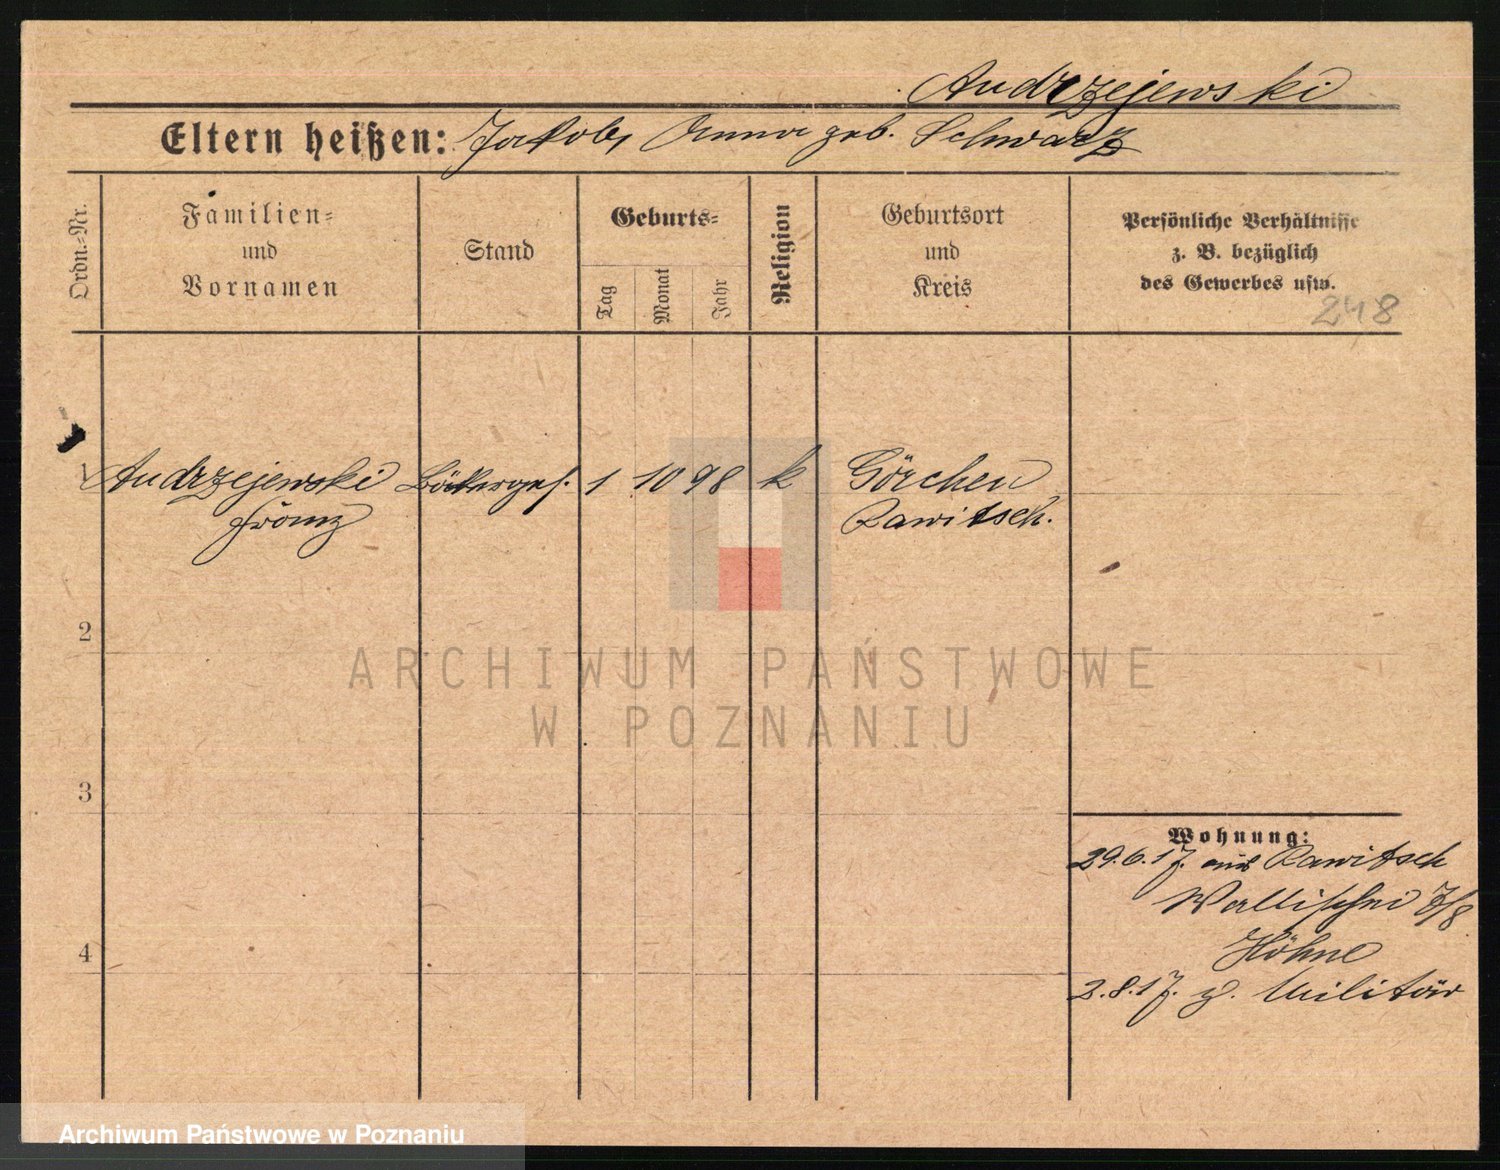 Andrzejewski
Eltern heißen: Jakob, Anna geb. Schwarz
Ordn.-Nr.
Familien-
und
Vornamen
Stand
Geburts-
Tag
Monat
Jahr
Religion
Geburtsort
und
Kreis
Persönliche Verhältnisse
z. B. bezüglich
des Gewerbes usw.
248
1 Andrzejewski Bäckerges. 1 10 98 k Görchen
Franz Rawitsch.
2
ARCHIWUM PAŃSTWOWE
W POZNANIU
3
Wohnung:
29.6.17. aus Rawitsch
Wallischei 7/8
Höhne
4
2.8.17. z. Militär
Archiwum Państwowe w Poznaniu